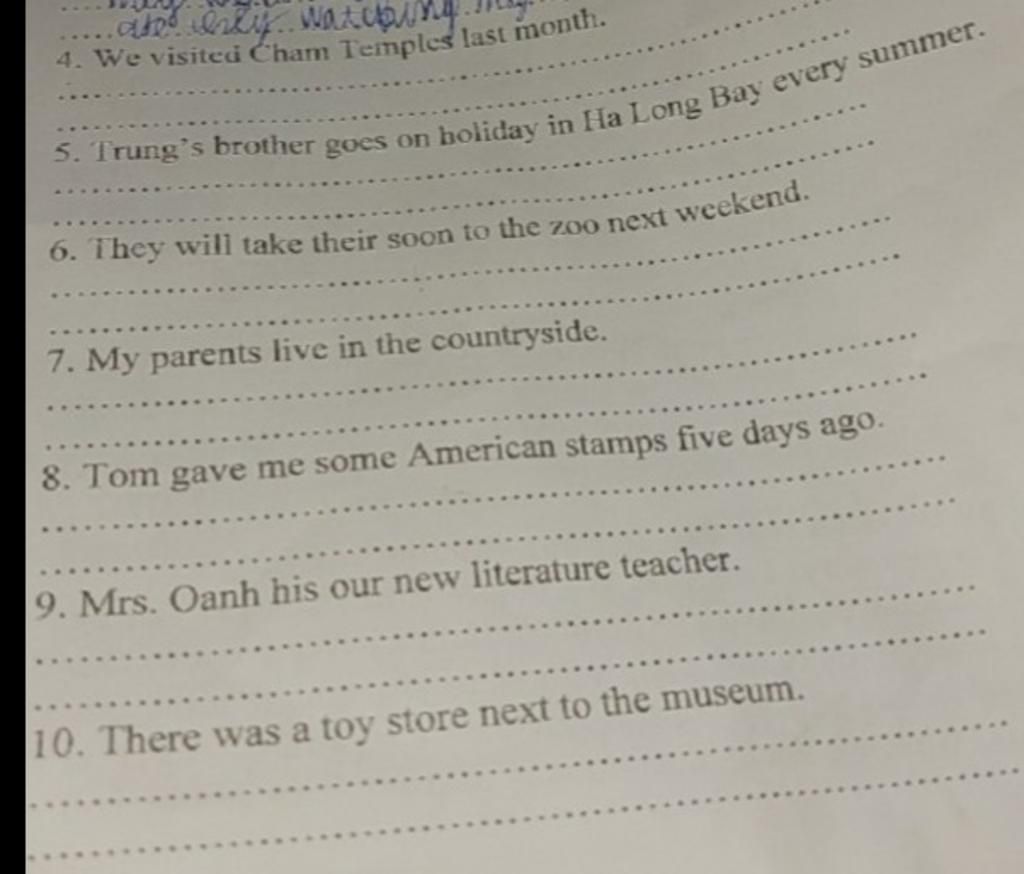 watching
4. We visited Cham Temples last month.
5. Trung's brother goes on holiday in Ha Long Bay every summer.
6. They will take their soon to the zoo next weekend.
7. My parents live in the countryside.
8. Tom gave me some American stamps five days ago.
9. Mrs. Oanh his our new literature teacher.
10. There was a toy store next to the museum.